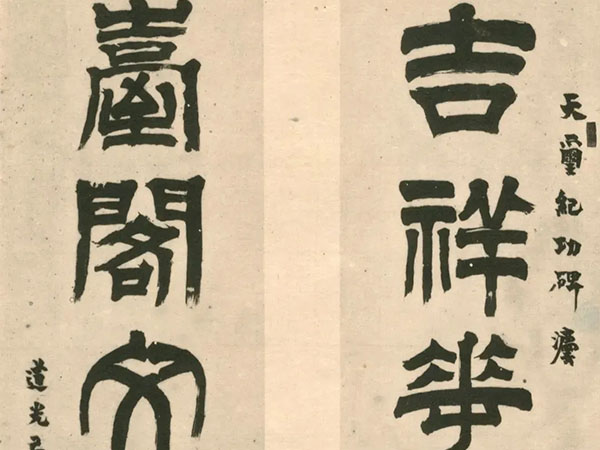 天璽紀功碑
吉祥華
臺閣文
道光